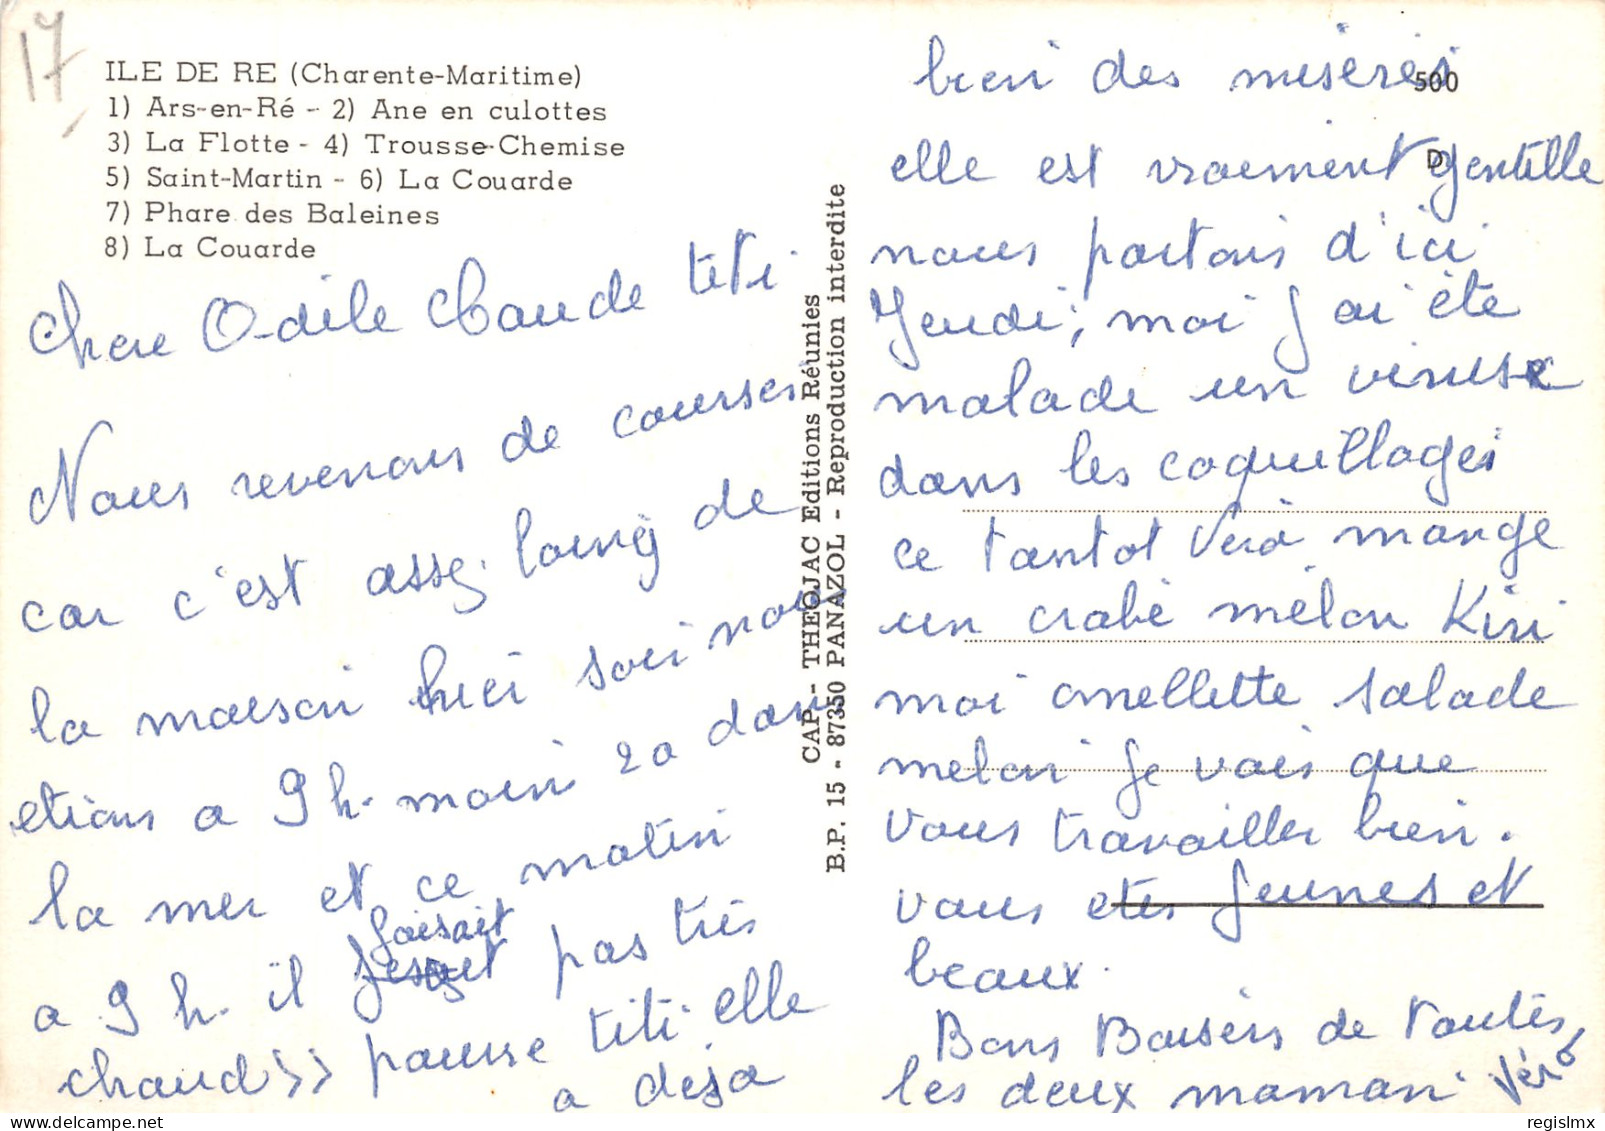 17
ILE DE RE (Charente-Maritime)
1) Ars-en-Ré - 2) Ane en culottes
3) La Flotte - 4) Trousse-Chemise
5) Saint-Martin - 6) La Couarde
7) Phare des Baleines
8) La Couarde
chere Odile Claude titi
Nous revenons de courses
car c'est assez loing de
la maison hier soir nous
etions a 9 h. moins 20 dans
la mer et ce matin
a 9 h. il faisait pas très
chaud pauvre titi elle
a deja
CAP - THEOJAC Editions Réunies
B.P. 15 - 87350 PANAZOL - Reproduction interdite
500
D
bien des miseres
elle est vraement gentille
nous partons d'ici
Jeudi, moi j'ai été
malade un virus
dans les coquillages
ce tantot Véro mange
un crabe mélon Kiri
moi omellette salade
melon je vois que
vous travailler bien.
vous etes jeunes et
beaux.
Bons Baisers de toutes
les deux maman Véro
regislmx